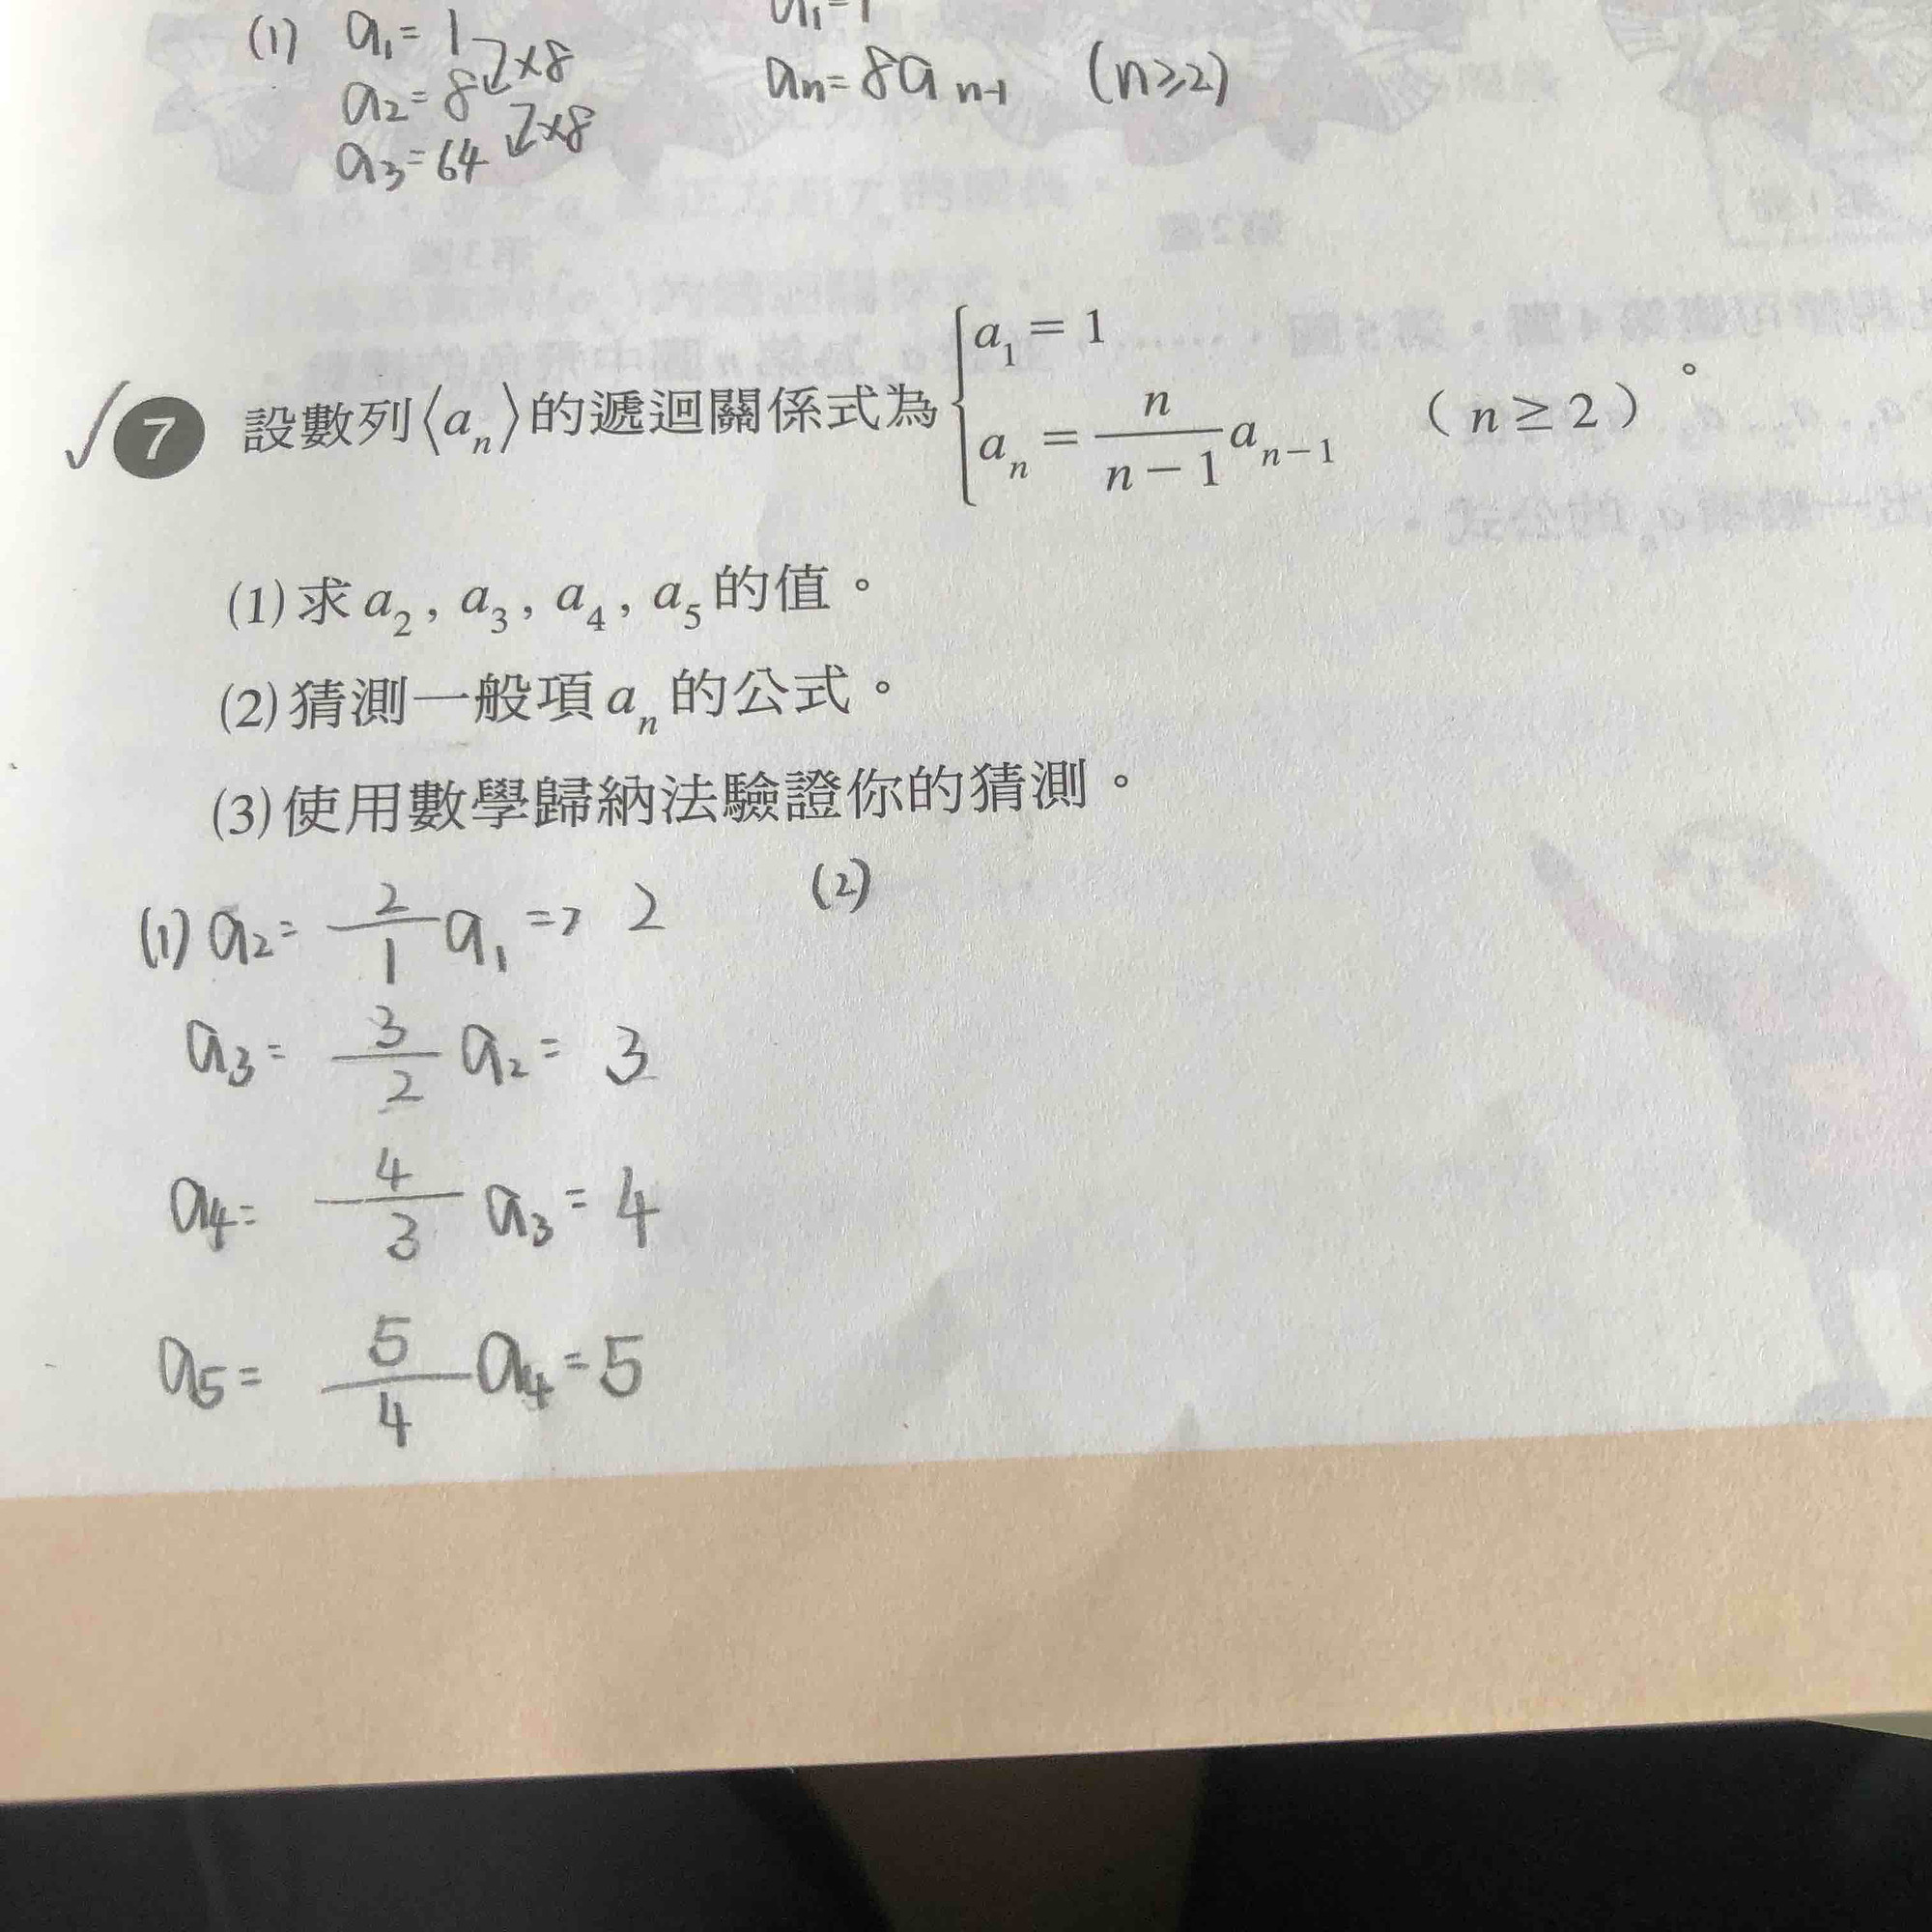 (1) a₁= 1 ×8 a₁=1
a₂= 8 ×8 aₙ= 8aₙ₋₁ (n≥2)
a₃=64
7 設數列⟨aₙ⟩的遞迴關係式為 { a₁ = 1
aₙ = n/(n−1) aₙ₋₁ (n ≥ 2)。
(1)求 a₂, a₃, a₄, a₅ 的值。
(2)猜測一般項 aₙ 的公式。
(3)使用數學歸納法驗證你的猜測。
(1) a₂= 2/1 a₁ => 2 (2)
a₃= 3/2 a₂= 3
a₄= 4/3 a₃= 4
a₅= 5/4 a₄=5